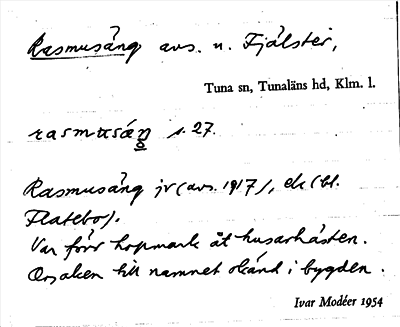 Rasmusäng avs. u. Fjälster,
Tuna sn, Tunaläns hd, Klm. l.
rasmusäŋ s. 27.
Rasmusäng jv (avs. 1917), ek (bl.
Flatebo).
Var förr hopmark åt husarhästen.
Orsaken till namnet okänd i bygden.
Ivar Modéer 1954